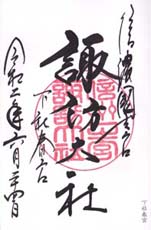 信濃國一之宮
諏訪大社
下社春宮
令和二年六月二十四日
下社春宮